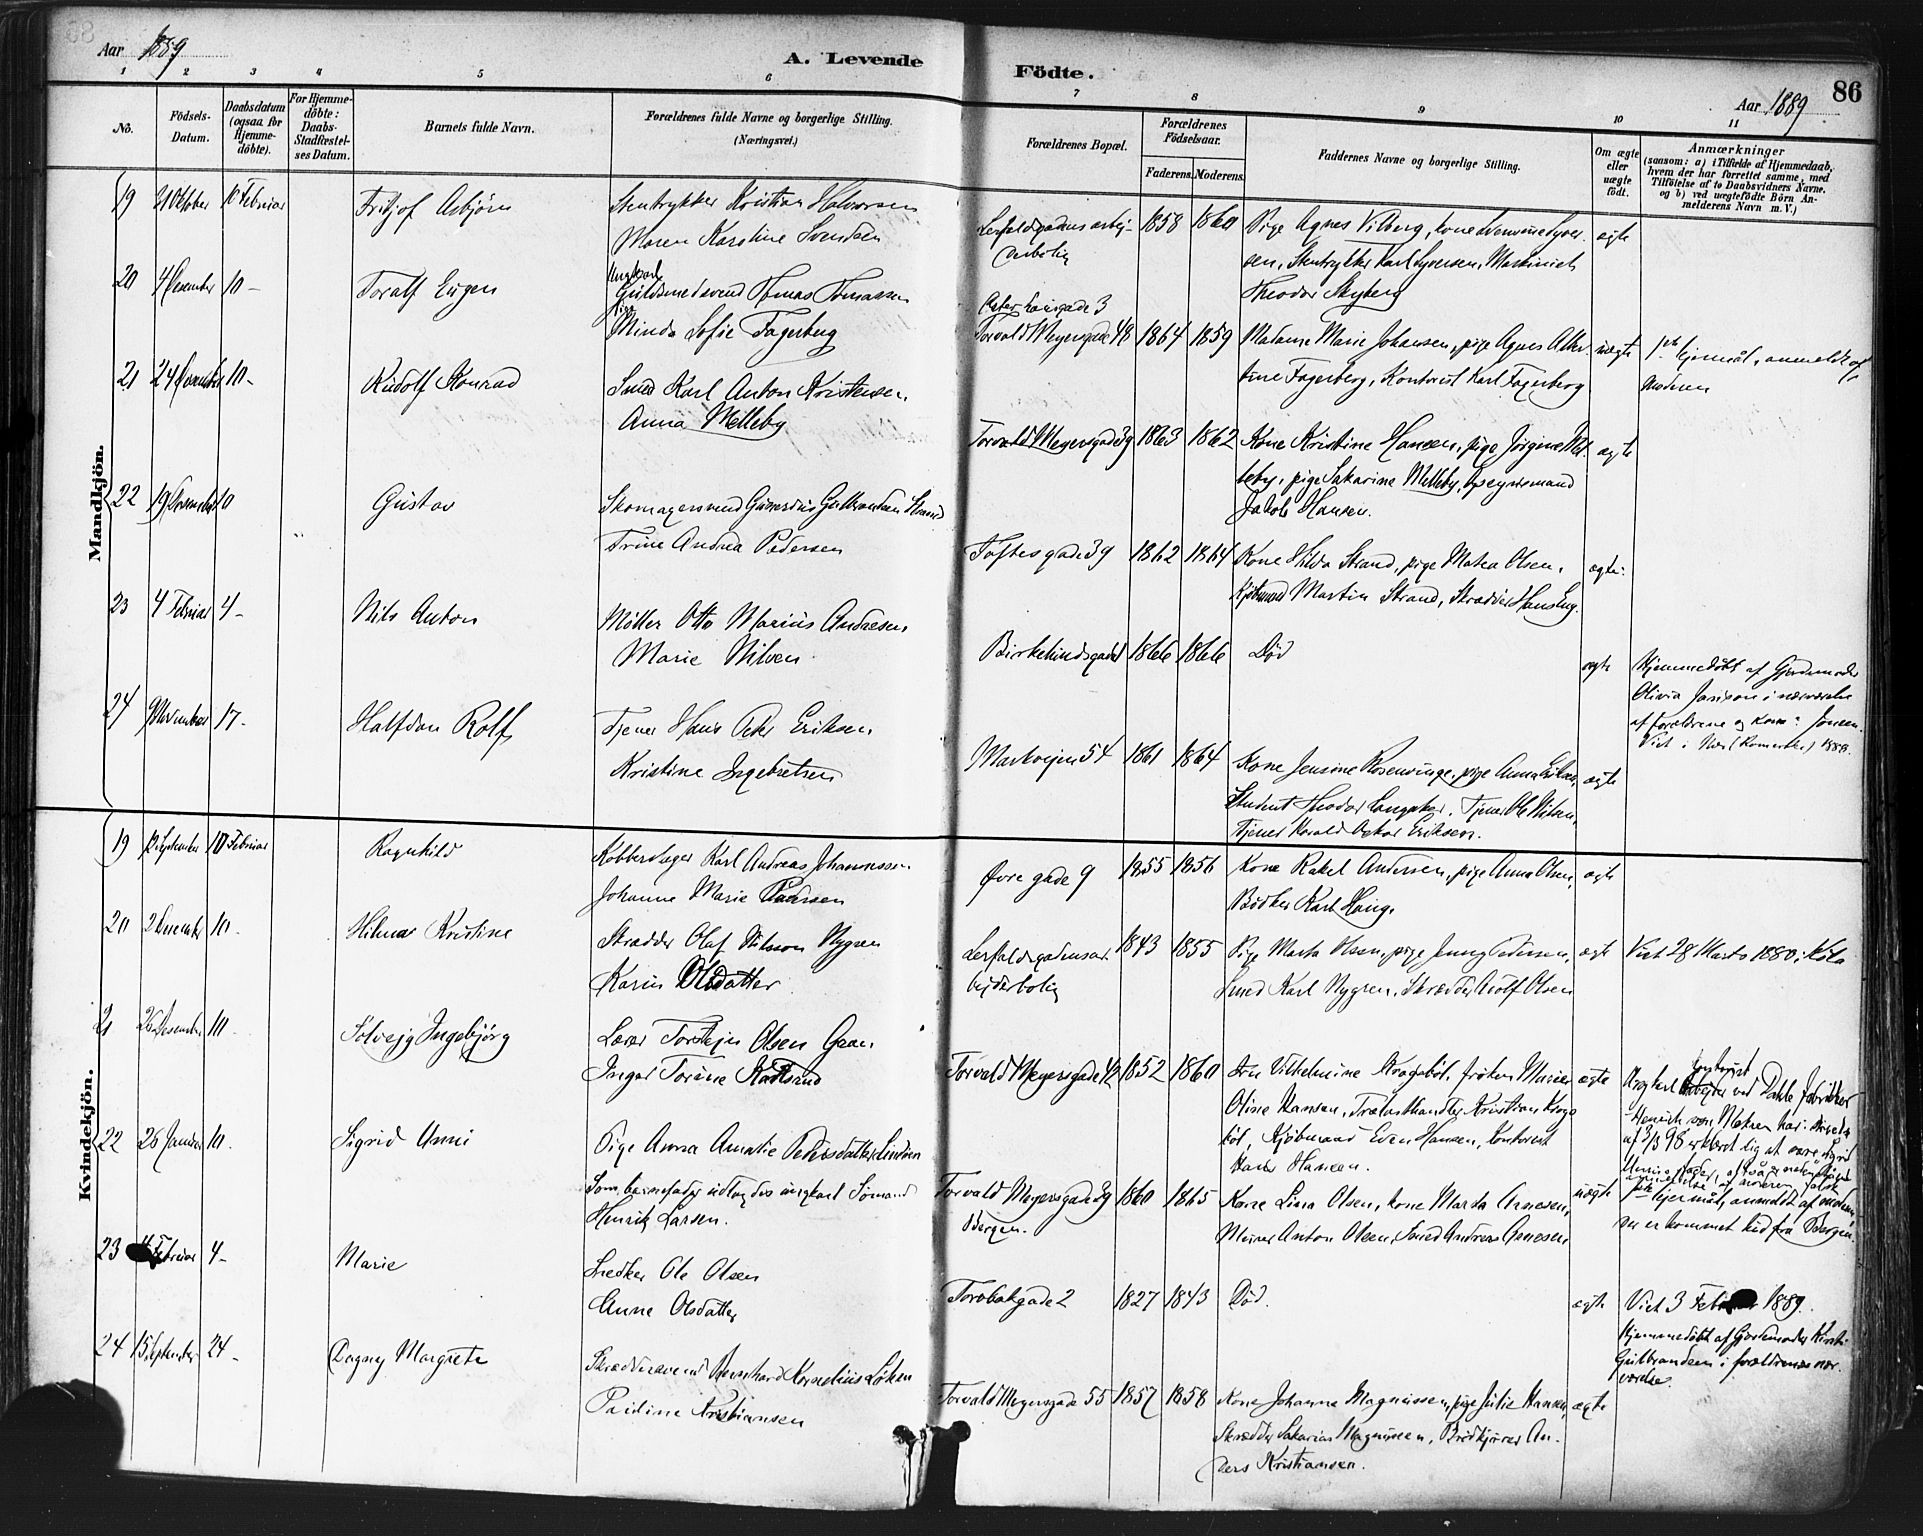 Aar 1889
A. Levende
Födte.
86
Aar 1889
1 2 3 4 5 6 7 8 9 10 11
No.
Födsels-
Datum.
Daabsdatum
(ogsaa for
Hjemme-
döbte).
For Hjemme-
döbte:
Daabs-
Stadfæstel-
ses Datum.
Barnets fulde Navn.
Forældrenes fulde Navne og borgerlige Stilling.
(Næringsvei.)
Forældrenes Bopæl.
Forældrenes
Födselsaar.
Faderens. Moderens.
Faddernes Navne og borgerlige Stilling.
Om ægte
eller
uægte
födt.
Anmærkninger
(saasom: a) i Tilfælde af Hjemmedaab,
hvem der har forrettet samme, med
Tilföielse af to Daabsvidners Navne.
og b) ved uægtefödte Börn An-
melderens Navn m. V.)
Mandkjön.
19 21 Oktober 10 Februar Fritjof Asbjörn Stentrykker Kristian Halvorsen
Maren Karoline Svendsen
1858 1860 Pige Agnes Vilberg, kone
sen, Stentrykker Karl Syversen, Maskinist
Theodor Skyberg
ægte
20 4 Desember 10 – Toralf Eugen Ungkarl
Guldsmedsvend Tomas Tomassen
Pige
Minda Sofie Fagerberg
3
Torvald Meyersgade 48 1864 1859 Madame Marie Johansen, pige Agnes Alber-
tine Fagerberg, Kontorist Karl Fagerberg
uægte anmeldt af
Moderen
21 24 10 – Rudolf Konrad Smed Karl Anton Kristensen,
Anna Melleby
Torvald Meyersgade 39 1863 1862 Kone Kristine Hansen, pige Jörgine Mel-
leby, pige Sakarine Melleby, Opsynsmand
Jakob Hansen.
ægte
22 19 Desember 10 Gustav Skomagersvend Gulbrandsen Strand
Trine Andrea Pedersen
Toftesgade 39 1862 1864 Kone Hilda Strand, pige Matea Olsen,
Kjöbmand Martin Strand, Skrædder Hans Eng.
ægte.
23 4 Februar 4 – Nils Anton Møller Otto Marius Andresen,
Marie Nilsen
1866 1866 Död
ægte Hjemmedöbt af Gjordemoder
Olivia i nærværelse
af forældrene og Jonsen.
Viet i Næs (Romerike) 1888.
24 9 November 17 – Halfdan Rolf Tjener Hans Peter Eriksen
Kristine Ingebretsen
Markvejen 54 1861 1864 Kone Jensine Rosenvinge, pige Anna Eriksen,
Student Theodor Tjener Ole Nilsen,
Tjener Harald Oskar Eriksen.
ægte
Kvindekjön.
19 September 10 Februar Ragnhild Kobberslager Karl Andreas Johannessen
Johanne Marie
Øvre gade 9 1855 1856 Kone Rakel Andersen, pige Anna Olsen,
Bödker Karl Haug.
ægte
20 2 Desember 10. Hilmar Kristine Skrædder Olaf Nilsson Nygren
Karin Olsdatter
1843 1855 Pige Marta Olsen, pige Jenny Pedersen,
Smed Karl Nygren, Skrædder Adolf Olsen
ægte Viet 28 Marts 1880 i Köla
21 26 Desember 10. Solvejg Ingebjörg Lærer Torstejn Olsen Graan
Inger Torine
Torvald Meyersgade 42 1852 1860 Fru Vilhelmine Krogsböl, fröken Marie
Oline Hansen, Trælasthandler Kristian Krogs-
böl, Kjöbmand Even Hansen, Kontorist
Hansen.
ægte
22 26 Januar 10. Sigrid Unni Pige Anna Amalie Pedersdatter
Som barnefader udlagdes ungkarl Sömand
Henrik Larsen.
Torvald Meyersgade 39
Bergen.
1860 1865 Kone Lina Olsen, kone Marta Arnesen,
Murer Anton Olsen, Smed Andreas Arnesen,
uægte Ungkarl ved Dahls fabrikker
Henrik von
af 3/3 98 erklæret sig at være Sigrid
Unnis fader,
lejermål, anmeldt af moderen,
der er kommet hid fra Bergen.
23 Februar 4 – Marie Snedker Ole Olsen
Anne Olsdatter
Torvbakgade 2 1827 1843 Död.
ægte Viet 3 1889.
Hjemmedöbt af Gjordemoder Kirsti
Gulbrandsen i forældrenes nær-
værelse.
24 15 September 24 – Dagny Margrete Skrædersvend Bernhard Kornelius Löken
Pauline Kristiansen
Torvald Meyersgade 55 1857 1858 Kone Johanne Magnussen, pige Julie Hansen,
Skrædder Sakarias Magnussen, Brödkjører An-
ders Kristiansen.
ægte